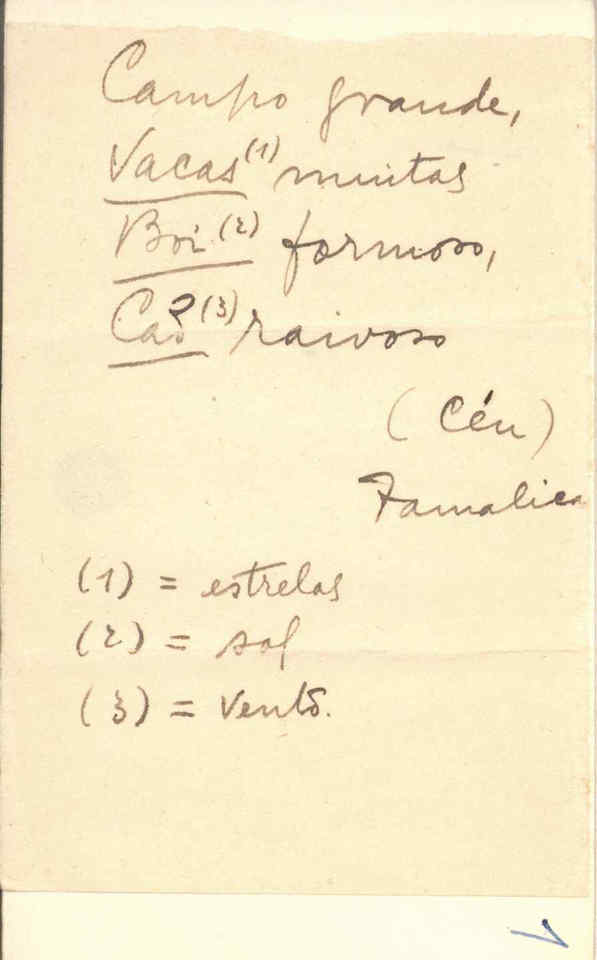 Campo grande,
Vacas (1) muitas
Boi (2) formoso,
Cão (3) raivoso
(Céu)
Famalica
(1) = estrelas
(2) = sol
(3) = vento.